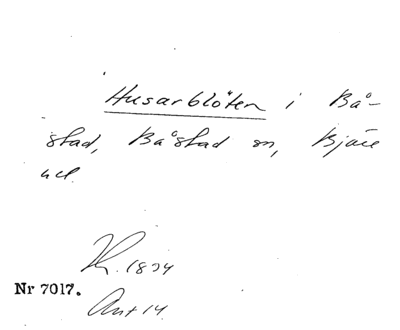 Husarblöten i Bå-
stad, Båstad sn, Bjäre
hd.
1894
Nr 7017.
Ant 14